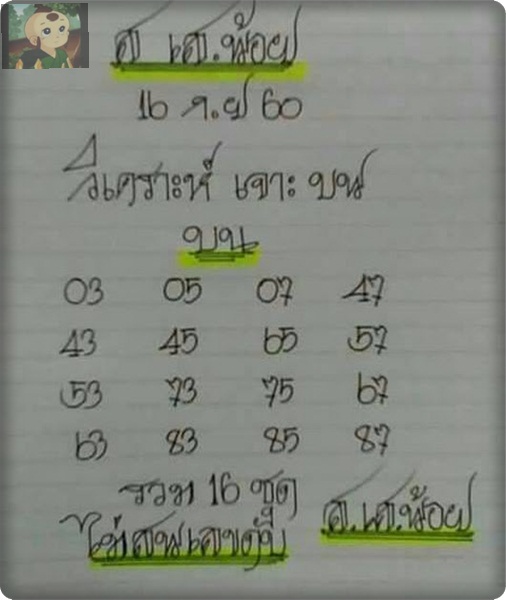 อ. เส.น้อย
16 ก.ย 60
วิเคราะห์ เจาะ บน
บน
03 05 07 47
43 45 65 57
53 73 75 67
63 83 85 87
รวม 16 ชุด
ไม่สนเลขดับ
อ.เส.น้อย